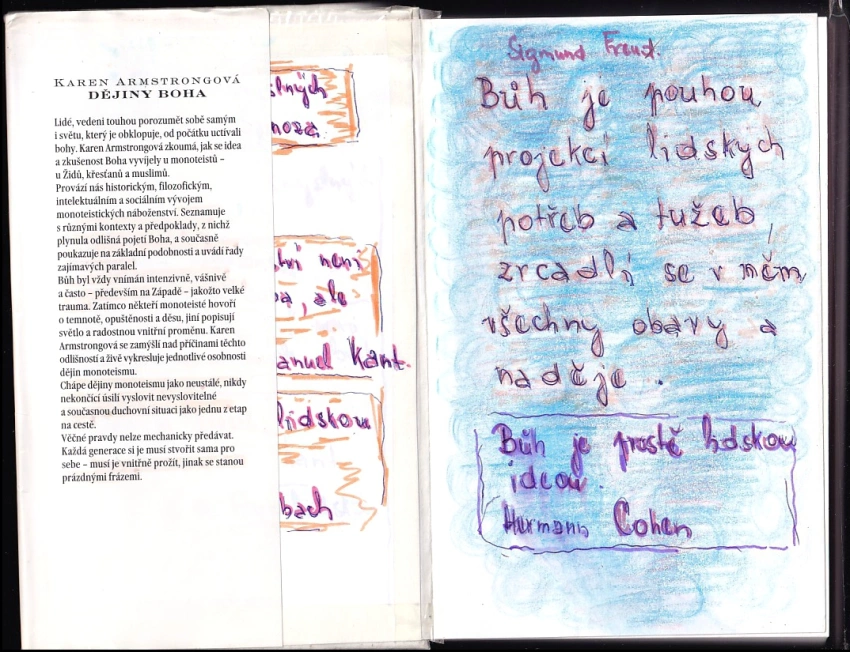 KAREN ARMSTRONGOVÁ
DĚJINY BOHA
Lidé, vedeni touhou porozumět sobě samým
i světu, který je obklopuje, od počátku uctívali
bohy. Karen Armstrongová zkoumá, jak se idea
a zkušenost Boha vyvíjely u monoteistů –
u Židů, křesťanů a muslimů.
Provází nás historickým, filozofickým,
intelektuálním a sociálním vývojem
monoteistických náboženství. Seznamuje
s různými kontexty a předpoklady, z nichž
plynula odlišná pojetí Boha, a současně
poukazuje na základní podobnosti a uvádí řady
zajímavých paralel.
Bůh byl vždy vnímán intenzivně, vášnivě
a často – především na Západě – jakožto velké
trauma. Zatímco někteří monoteisté hovoří
o temnotě, opuštěnosti a děsu, jiní popisují
světlo a radostnou vnitřní proměnu. Karen
Armstrongová se zamýšlí nad příčinami těchto
odlišností a živě vykresluje jednotlivé osobnosti
dějin monoteismu.
Chápe dějiny monoteismu jako neustálé, nikdy
nekončící úsilí vyslovit nevyslovitelné
a současnou duchovní situaci jako jednu z etap
na cestě.
Věčné pravdy nelze mechanicky předávat.
Každá generace si je musí stvořit sama pro
sebe – musí je vnitřně prožít, jinak se stanou
prázdnými frázemi.
není
, ale
anuel Kant.
lidskou
bach
Sigmund Freud.
Bůh je pouhou
projekcí lidských
potřeb a tužeb,
zrcadlí se v něm
všechny obavy a
naděje.
Bůh je prostě lidskou
ideou.
Hermann Cohen